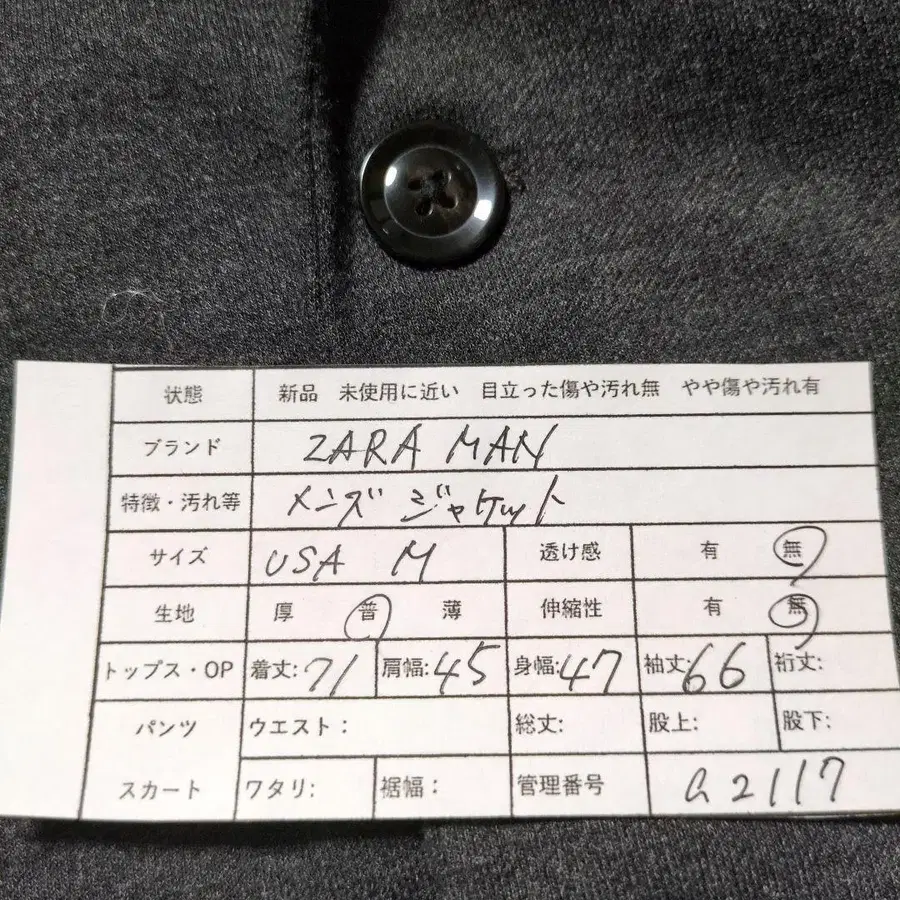 状態 新品 未使用に近い 目立った傷や汚れ無 やや傷や汚れ有
ブランド ZARA MAN
特徴・汚れ等 メンズ ジャケット
サイズ USA M 透け感 有 無
生地 厚 普 薄 伸縮性 有 無
トップス・OP 着丈:71 肩幅:45 身幅:47 袖丈:66 裄丈:
パンツ ウエスト: 総丈: 股上: 股下:
スカート ワタリ: 裾幅: 管理番号 a2117